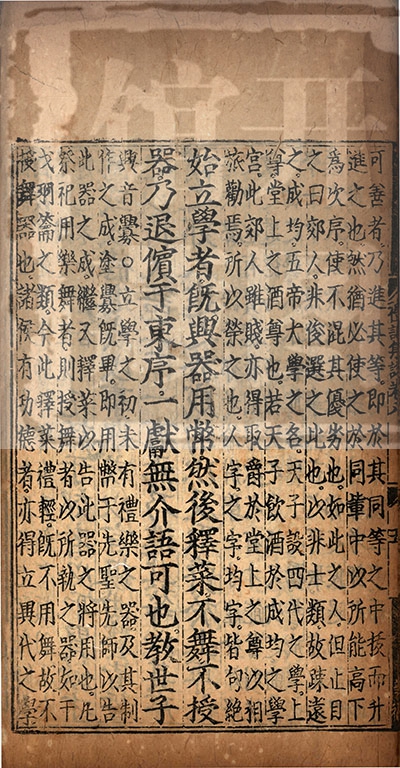 可善者乃進其等即於其同等之中拔而升
進之也然猶必使之於同輩中以所能高下
爲次序使不混其優劣也如此之人但止目
之曰郊人非俊選之比也以非士類故疎遠
之成均五帝大學之名天子設四代之學上
尊堂上之酒尊也若天子飲酒於成均之學
宮此郊人雖賤亦得取爵於堂上之尊以相
旅勸焉所以榮之也人字之字均字皆句絶
始立學者旣興器用幣然後釋菜不舞不授
器乃退儐于東序一獻無介語可也教世子
興音釁○立學之初未有禮樂之器及其制
作之成塗釁旣畢即用幣于先聖先師以告
此器之成繼又釋菜以告此器之將用也凡
祭祀用樂舞者則授舞者以所執之器如干
戈羽籥之類今此釋菜禮輕旣不用舞故不
授舞器也諸侯有功德者亦得立異代之學